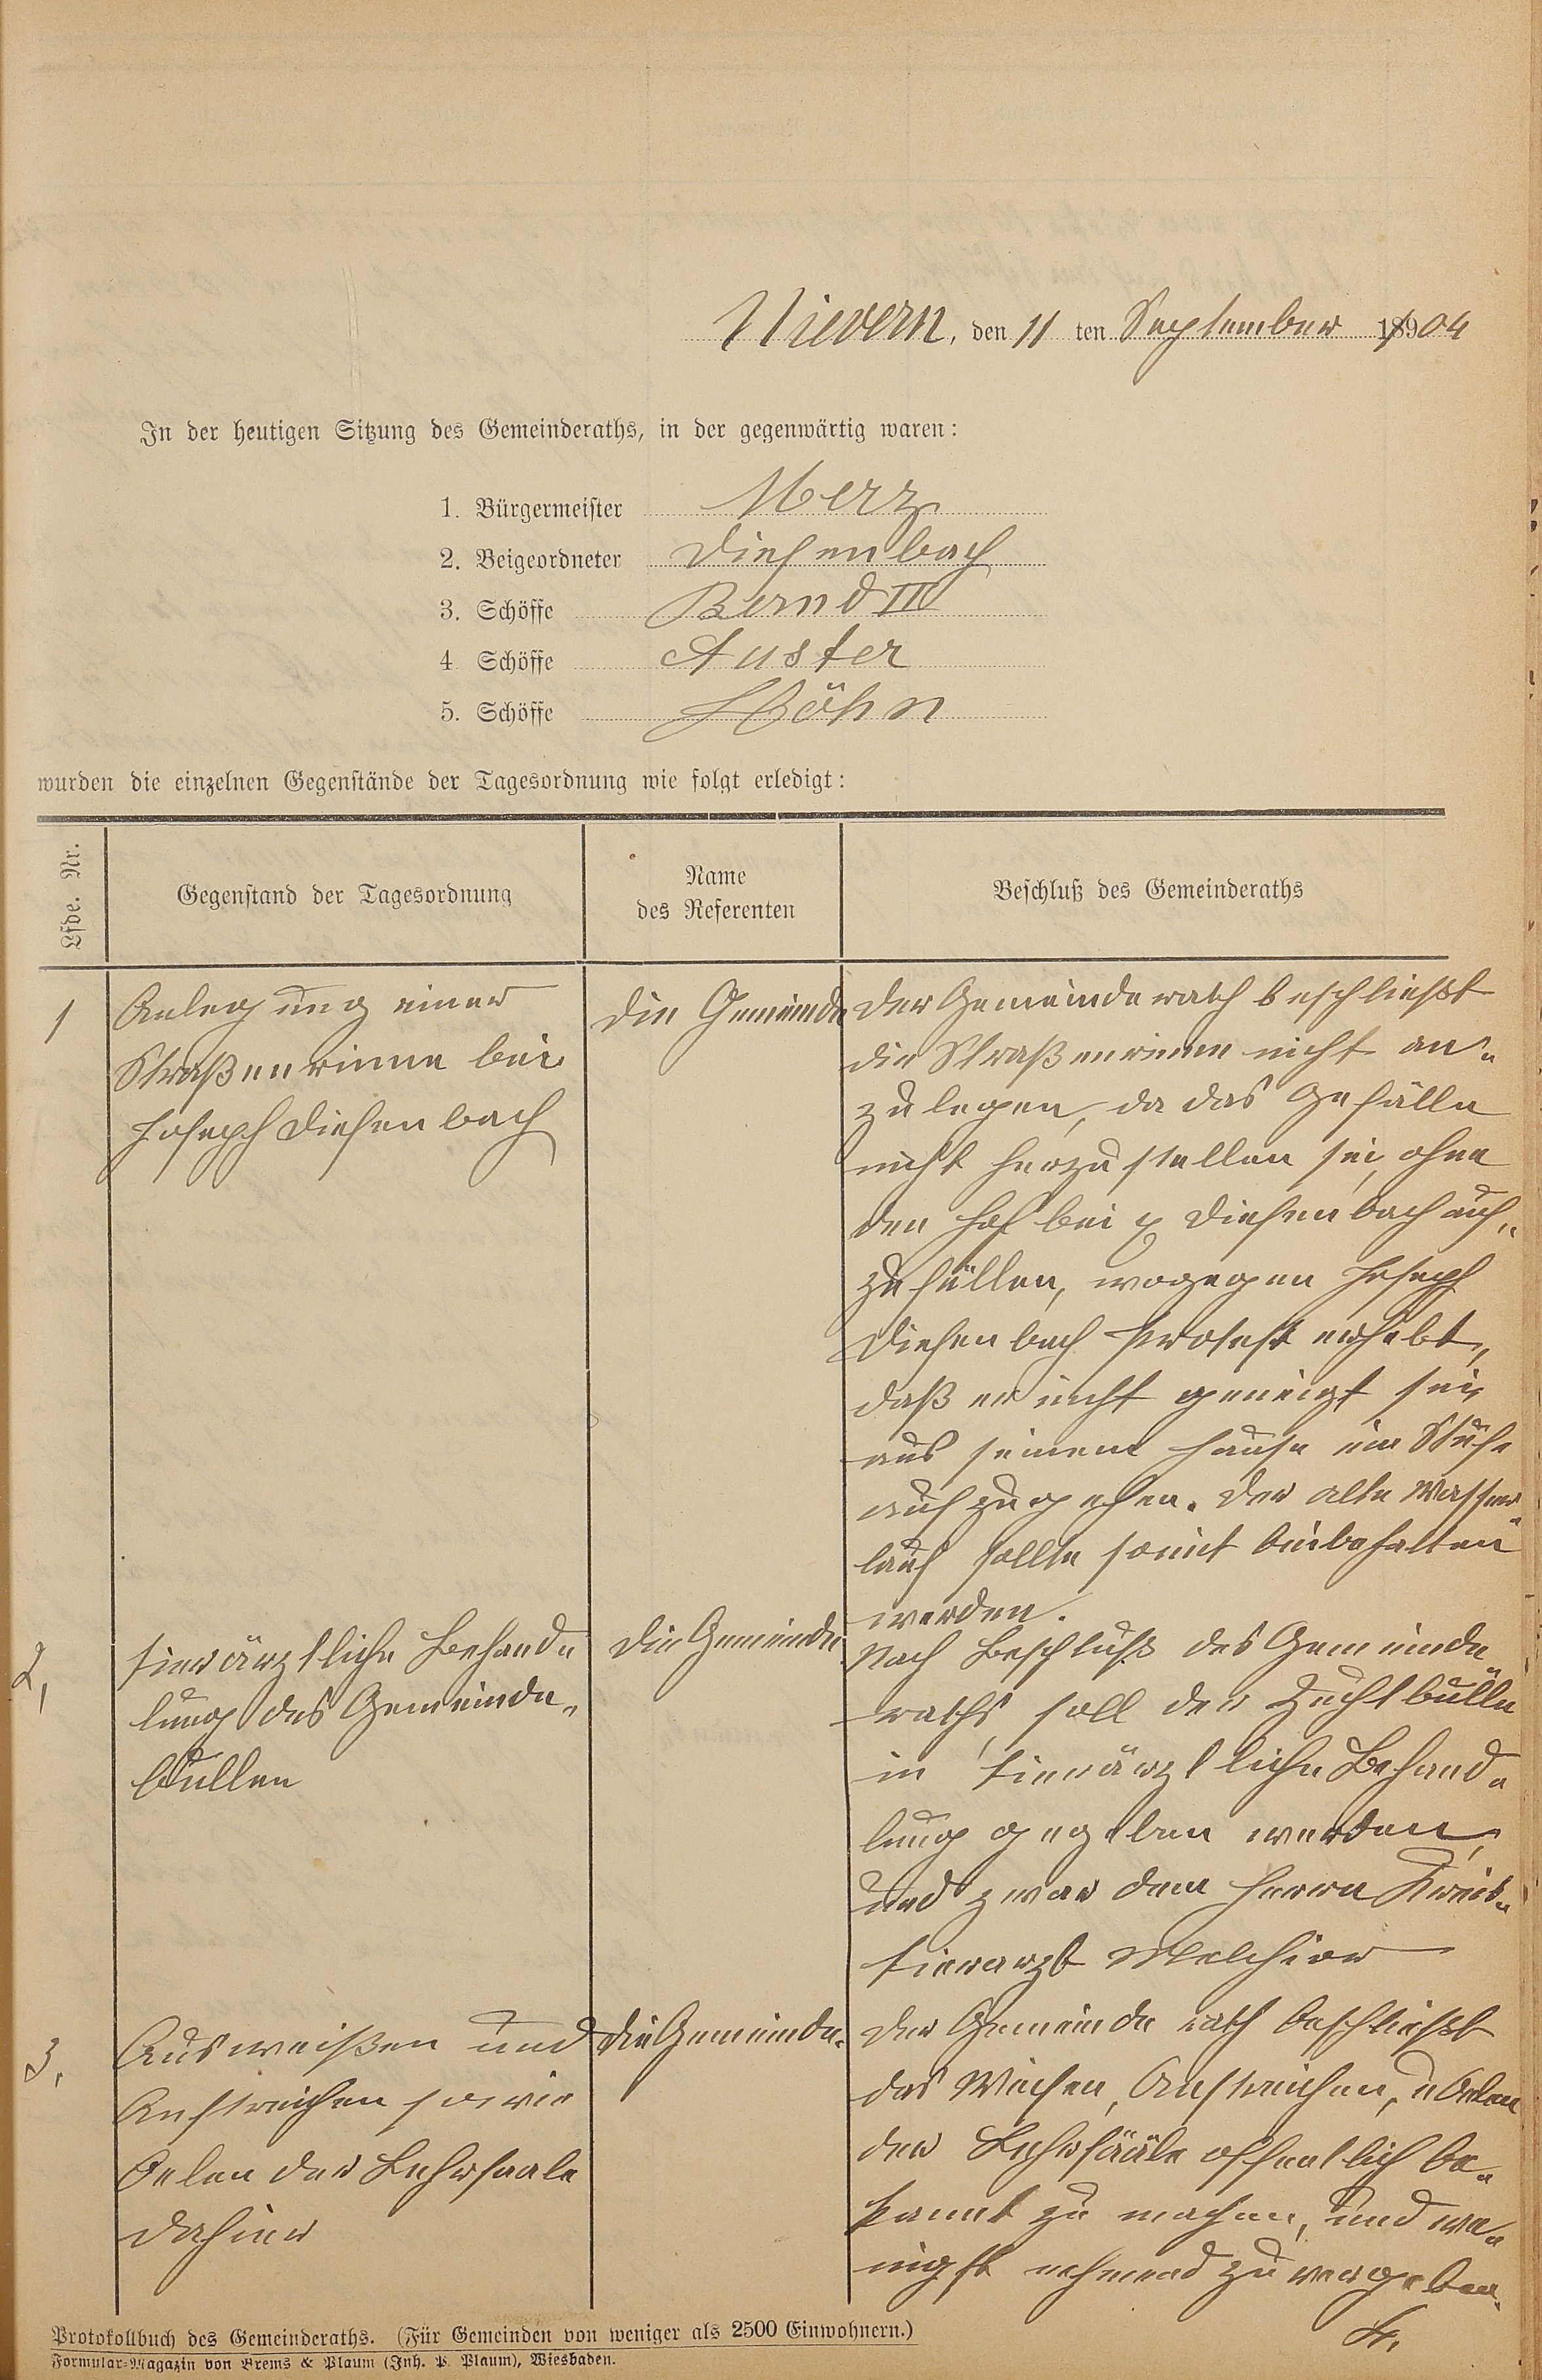 Nievern, den 11 ten September 18904
In der heutigen Sitzung des Gemeinderaths, in der gegenwärtig waren:
1. Bürgermeister Merz
2. Beigeordneter Diefenbach
3. Schöffe Bernd III
4 Schöffe Auster
5. Schöffe Höhn
wurden die einzelnen Gegenstände der Tagesordnung wie folgt erledigt:
Lfde. Nr.
Gegenstand der Tagesordnung
Name
des Referenten
Beschluß des Gemeinderaths
1
Anlegung einer
Straßenrinne bei
Joseph Diefenbach
die Gemeinde
Der Gemeinderath beschließt
die Straßenrinne nicht an-
zulegen, da das Gefälle
nicht herzustellen sei, ohne
den Hof bei p Diefenbach auf-
zufüllen, wogegen Joseph
Diefenbach Protest erhebt,
daß er nicht geneigt sei,
aus seinem Hause ein Stufe
aufzugehen. Der alte Wasser-
lauf sollte somit beibehalten
werden.
2,
tierärztliche Behand-
lung des Gemeinde-
bullen
die Gemeinde
Nach Beschluß des Gemeinde
raths, soll der Zuchtbulle
in tierärztliche Behand-
lung gegeben werden,
und zwar dem Herrn Kreis-
tierarzt Melchior
3,
Ausweißen und
Anstreichen sowie
Oelen der Lehrsaale
dahier
die Gemeinde.
Der Gemeinde rath beschließt
das Weisen, Anstreichen, u Oelen
der Lehrsääle offentlich be-
kannt zu machen, und we-
nigst nehmend zu vergeben.
Protokollbuch des Gemeinderaths. (Für Gemeinden von weniger als 2500 Einwohnern.)
Formular-Magazin von Brems & Plaum (Inh. P. Plaum), Wiesbaden.